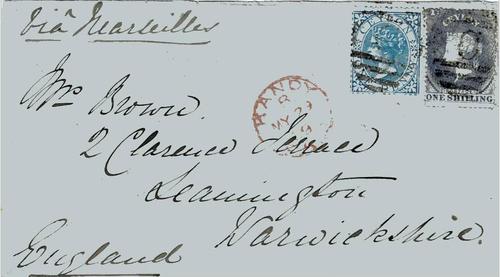 viâ Marseilles
CEYLON
ONE SHILLING
KANDY
MY 29
Mrs Brown.
2 Clarence Terrace
Leamington
Warwickshire.
England